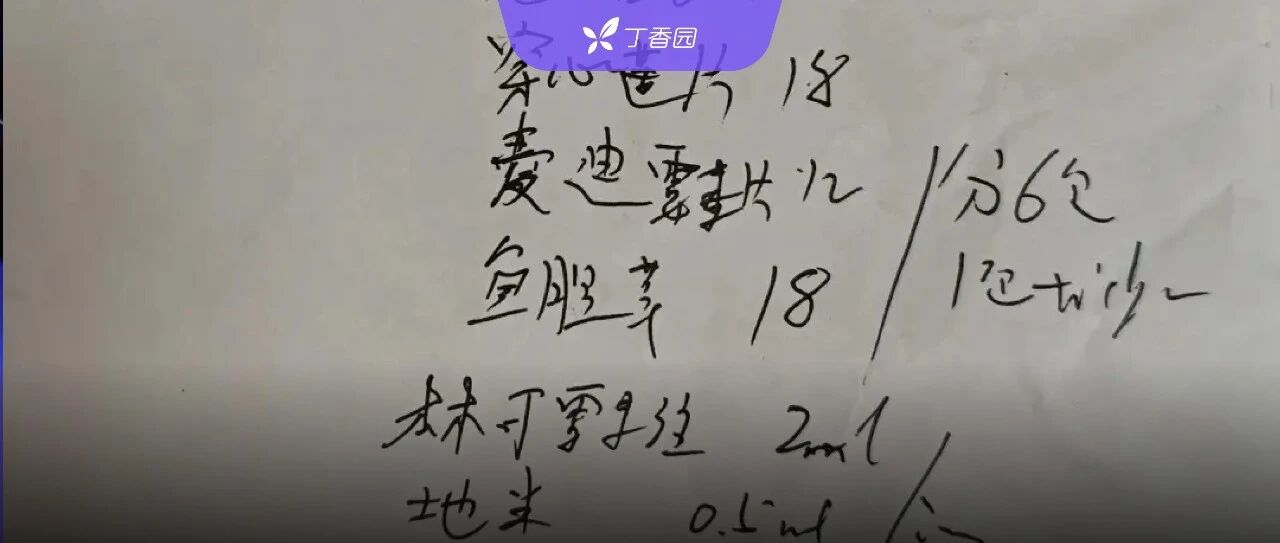 丁香园
穿心莲片 18
麦迪霉素片 12
/分6包
鱼胆草 18
1包 tid
林可霉素 2ml
地米 0.5ml /